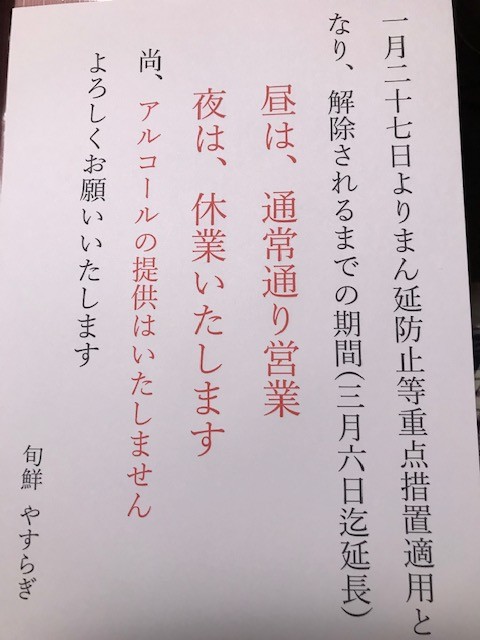 一月二十七日よりまん延防止等重点措置適用と
なり、解除されるまでの期間(三月六日迄延長)
昼は、通常通り営業
夜は、休業いたします
尚、アルコールの提供はいたしません
よろしくお願いいたします
旬鮮 やすらぎ